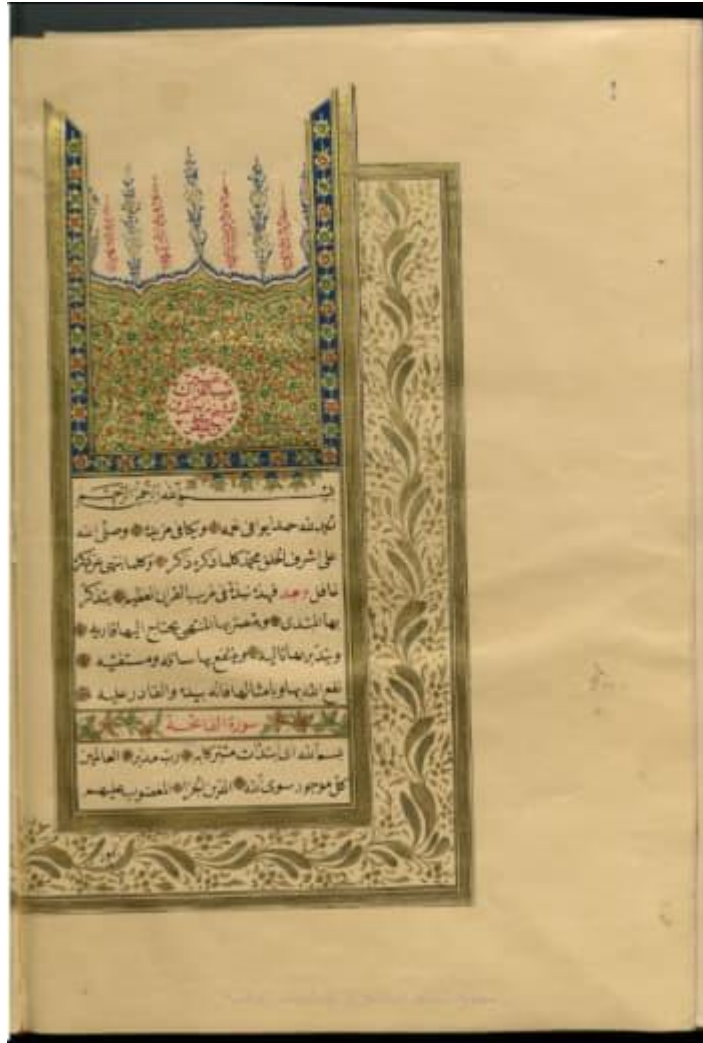 بسم الله الرحمن الرحيم
لله حمدا يوافي نعمه ويكافي مزيده وصلى الله
على اشرف الخلق محمد كلما ذكره ذاكر وكلما سهى عن ذكره
غافل وبعد فهذه نبذة في غريب القران العظيم يتذكر
بها المبتدى المنتهى يحتاج اليها قاريه
ويتدبر بها تاليه وينتفع بها سائله ومستفتيه
نفع الله بها وبامثالها فانه بيده والقادر عليه
سورة الفاتحة
بسم الله اى ابتدأت رب مدبر العالمين
كل موجود سوى الله الدين الجزا المغضوب عليهم